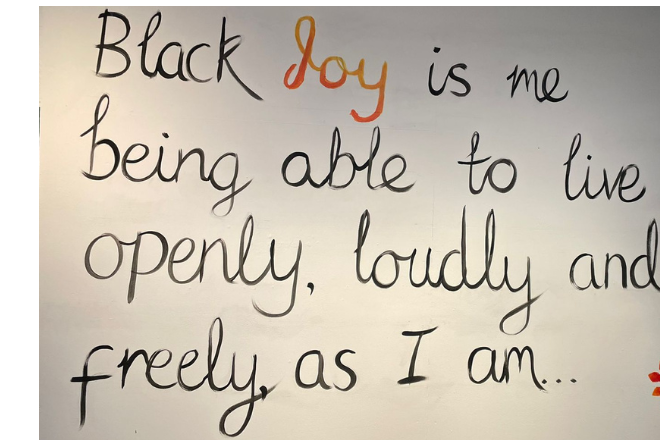 Black Joy is me
being able to live
openly, loudly and
freely, as I am...